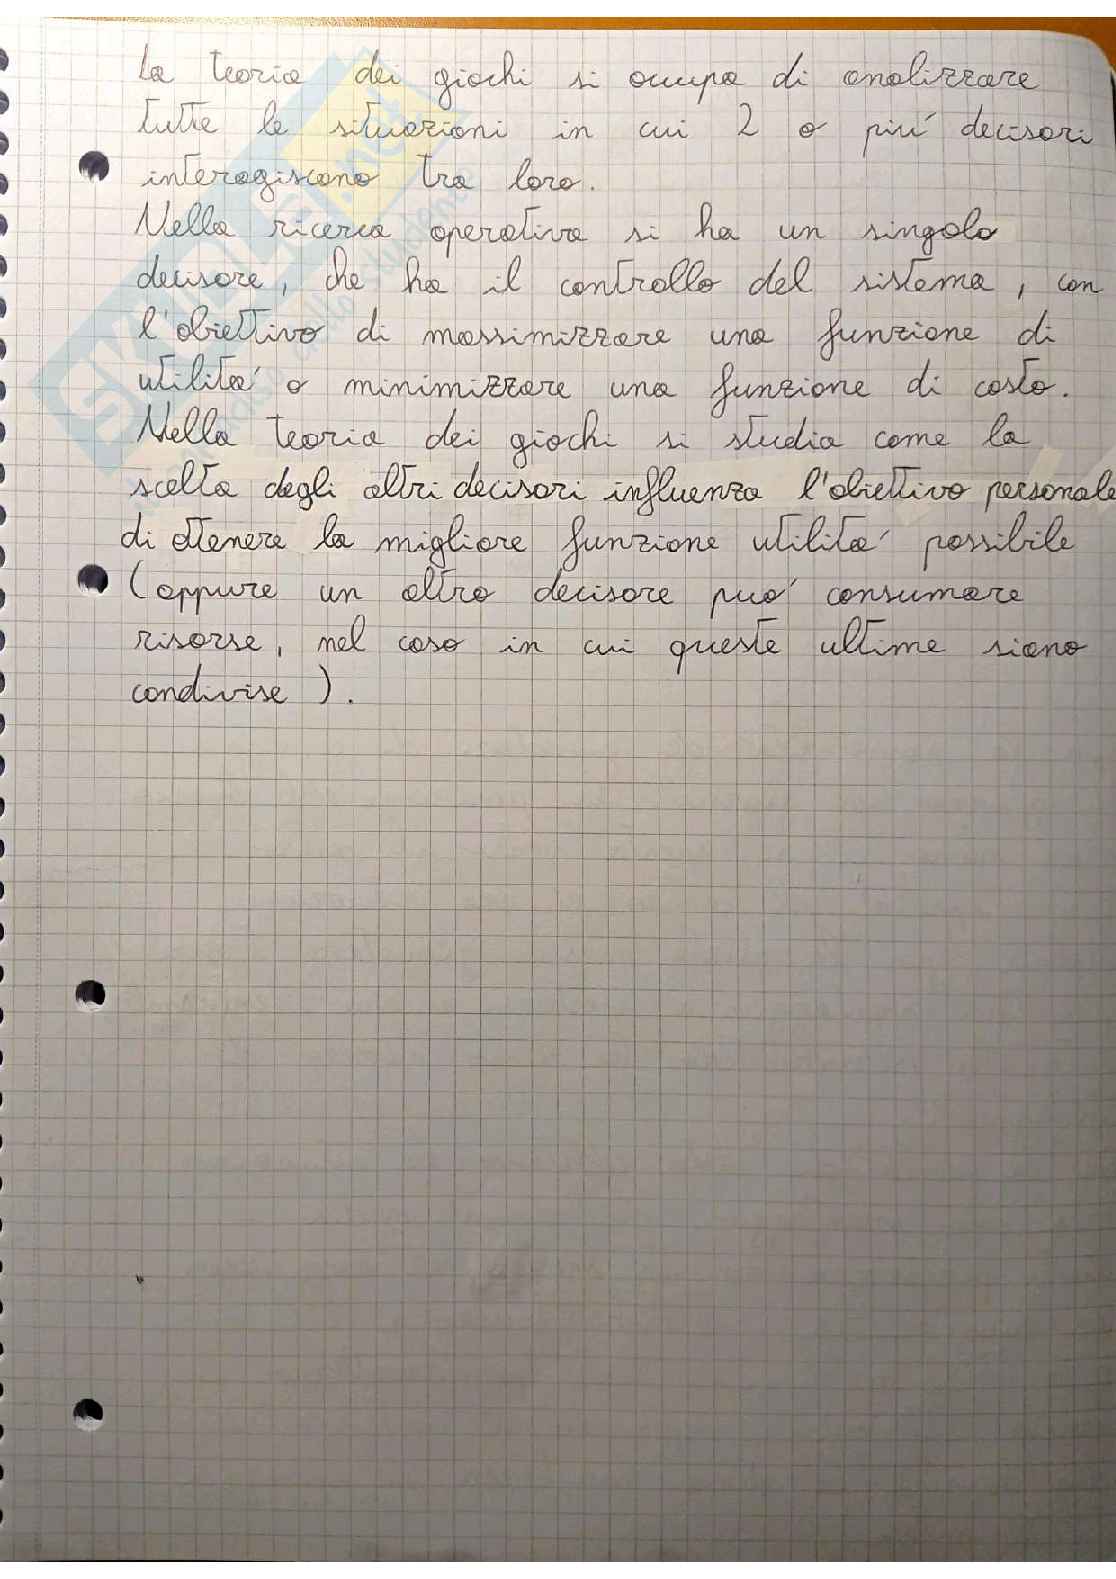 La teoria dei giochi si occupa di analizzare
tutte le situazioni in cui 2 o piú decisori
interagiscono tra loro.
Nella ricerca operativa si ha un singolo
decisore, che ha il controllo del sistema, con
l'obiettivo di massimizzare una funzione di
utilitá o minimizzare una funzione di costo.
Nella teoria dei giochi si studia come la
scelta degli altri decisori influenza l'obiettivo personale
di ottenere la migliore funzione utilitá possibile
(oppure un altro decisore puó consumare
risorse, nel caso in cui queste ultime siano
condivise).